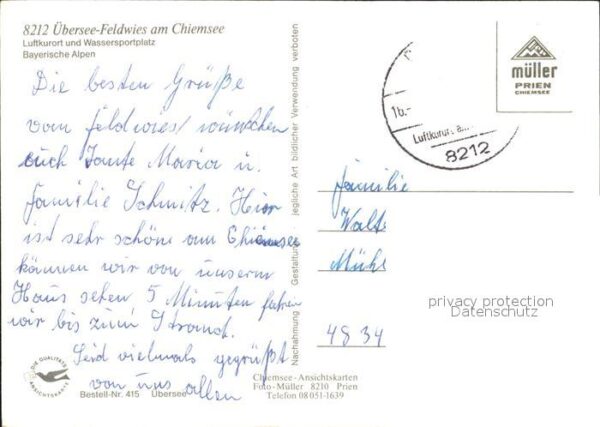 8212 Übersee-Feldwies am Chiemsee
Luftkurort und Wassersportplatz
Bayerische Alpen
Die besten Grüße
vom feldwies/wünschen
euch Tante Maria u.
familie Schmitz. Hier
ist sehr schöne am Chiemsee
können wir von unserm
Haus sehen 5 Minuten fahren
wir bis zum Strand.
Seid vielmals gegrüßt
von uns allen
DIE QUALITÄTS
ANSICHTSKARTE
Bestell-Nr. 415 Übersee
jegliche Art bildlicher Verwendung verboten
Nachahmung Gestaltung
müller
PRIEN
CHIEMSEE
16.-
Luftkurort a...
8212
familie
Walte
Mühl
4834
privacy protection
Datenschutz
Chiemsee-Ansichtskarten
Foto-Müller 8210 Prien
Telefon 08051-1639